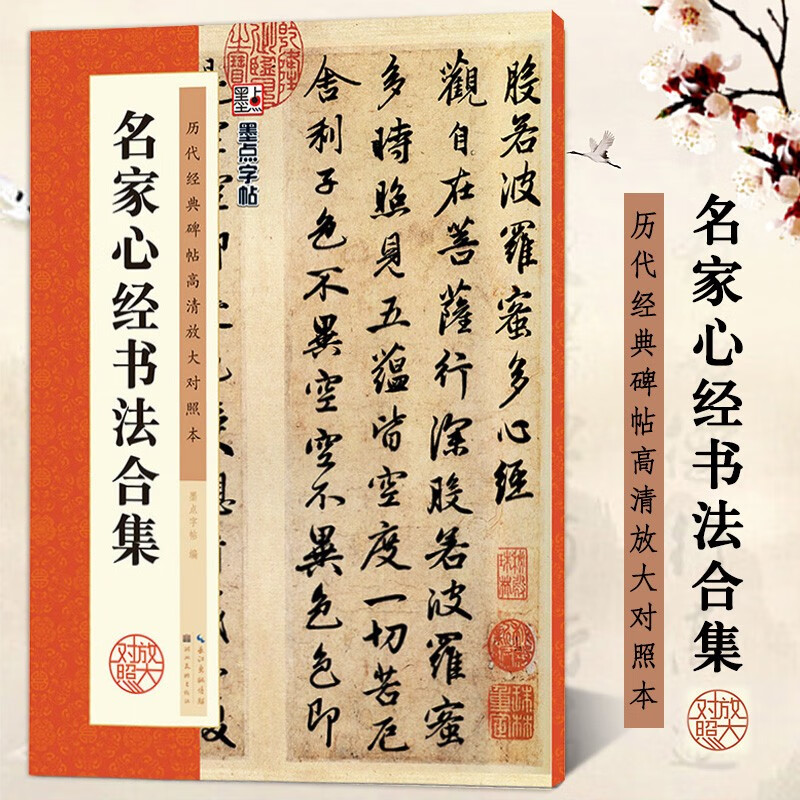 名家心经书法合集
历代经典碑帖高清放大对照本
墨点字帖 编
放大
对照
长江出版传媒
湖北美术出版社
墨点字帖
般若波羅蜜多心經
觀自在菩薩行深般若波羅蜜
多時照見五蘊皆空度一切苦厄
舍利子色不異空空不異色色即
名家心经书法合集
历代经典碑帖高清放大对照本
放大
对照